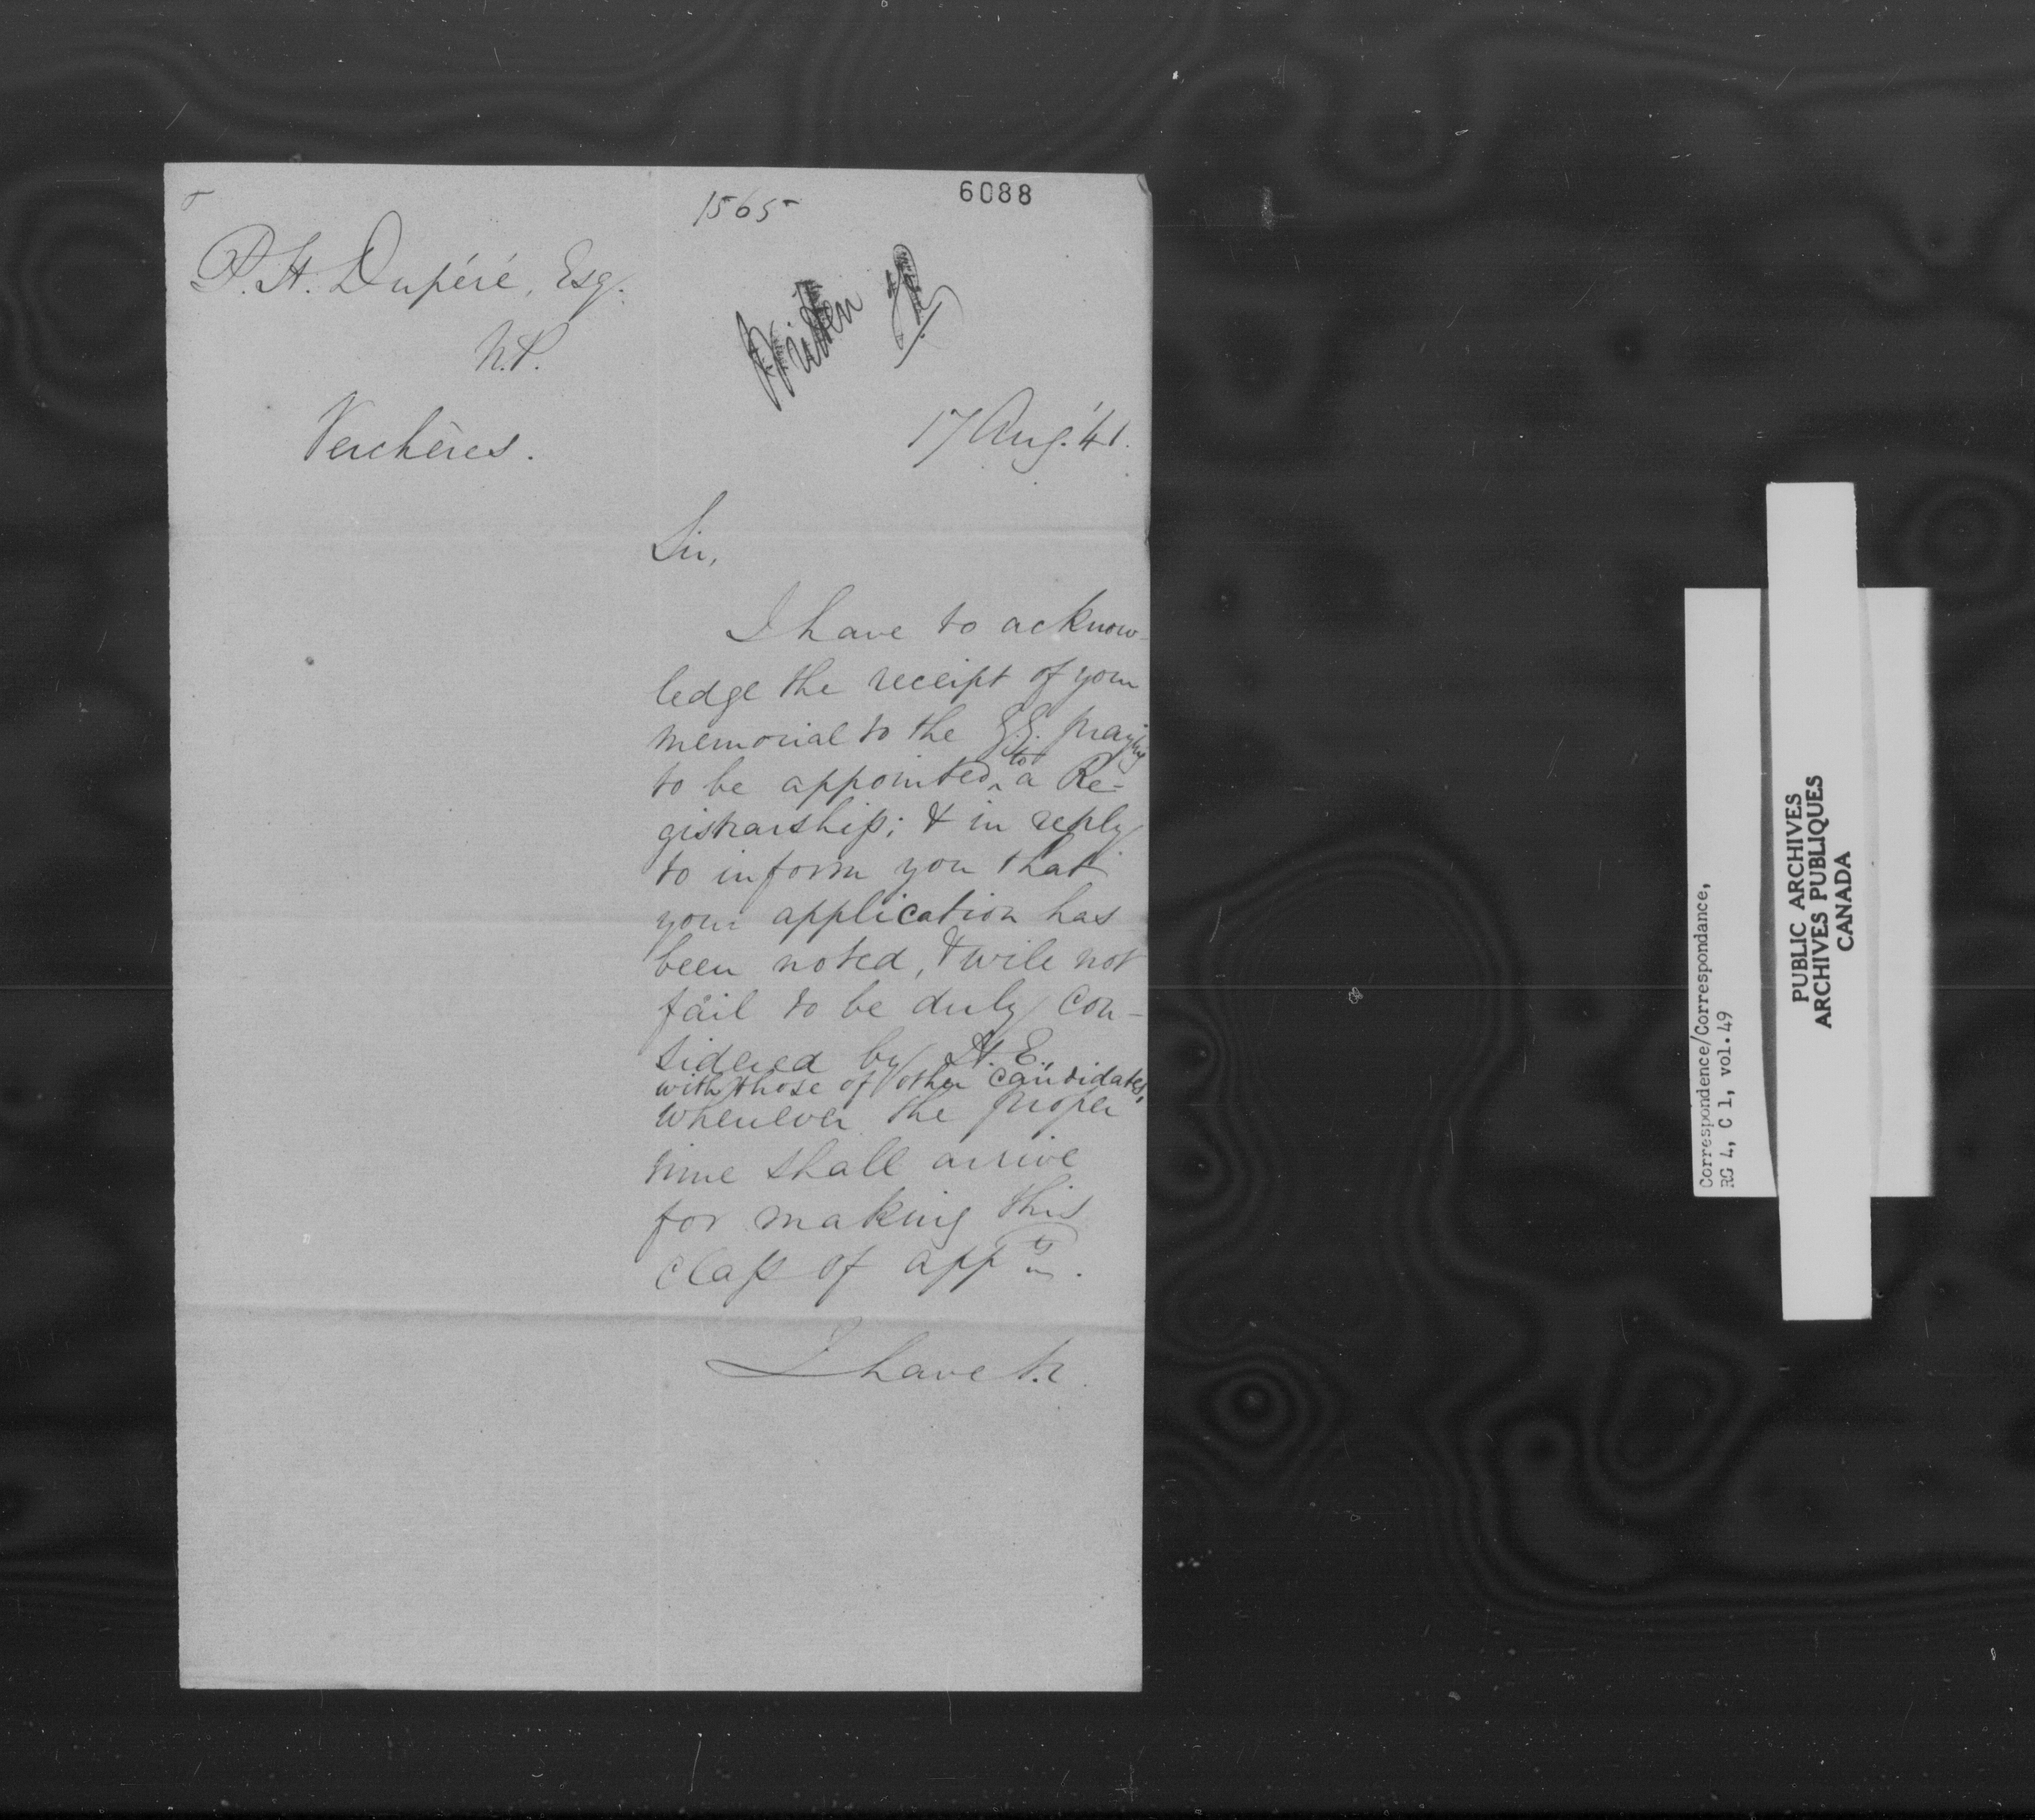 1565
6088
P. H. Dupéré, Esq.
N.P.
Verchères.
Written
17 Aug. '41.
Sir,
I have to acknow-
ledge the receipt of your
memorial to the G.G. praying
to be appointed to a Re=
gistrarship; & in reply
to inform you that
your application has
been noted, & will not
fail to be duly con-
sidered by H.E.,
with those of other candidates,
whenever the proper
time shall arrive
for making this
class of appts.
I have &c.
Correspondence/Correspondance,
RG 4, C 1, vol. 49
PUBLIC ARCHIVES
ARCHIVES PUBLIQUES
CANADA